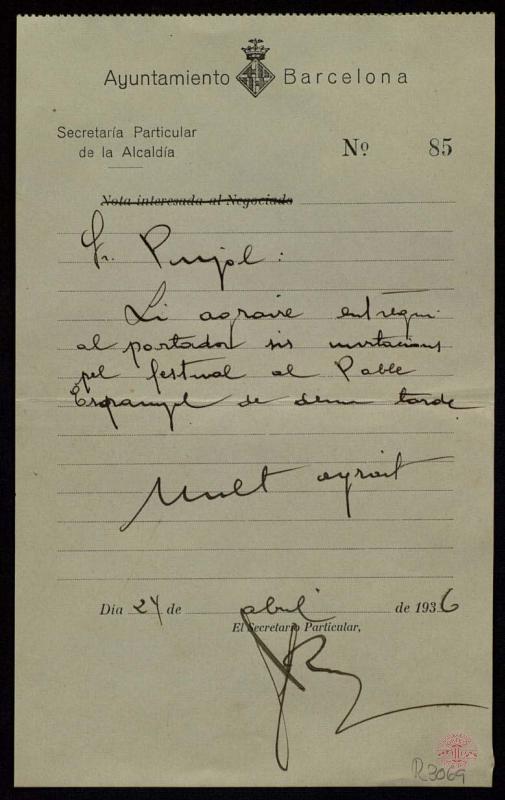 Ayuntamiento Barcelona
Secretaría Particular
de la Alcaldía
Nº 85
Nota interesada al Negociado
Sr. Pujol:
Li agraire entregui
al portador sis invitacions
pel festival al Poble
Espanyol de dema tarde
Molt agrait
Día 24 de abril de 1936
El Secretario Particular,
R.3069